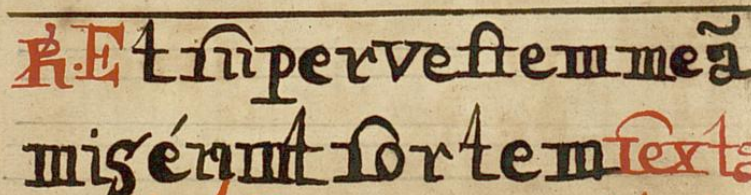 ℟. Et super vestem meã
misérunt sortem Sexta